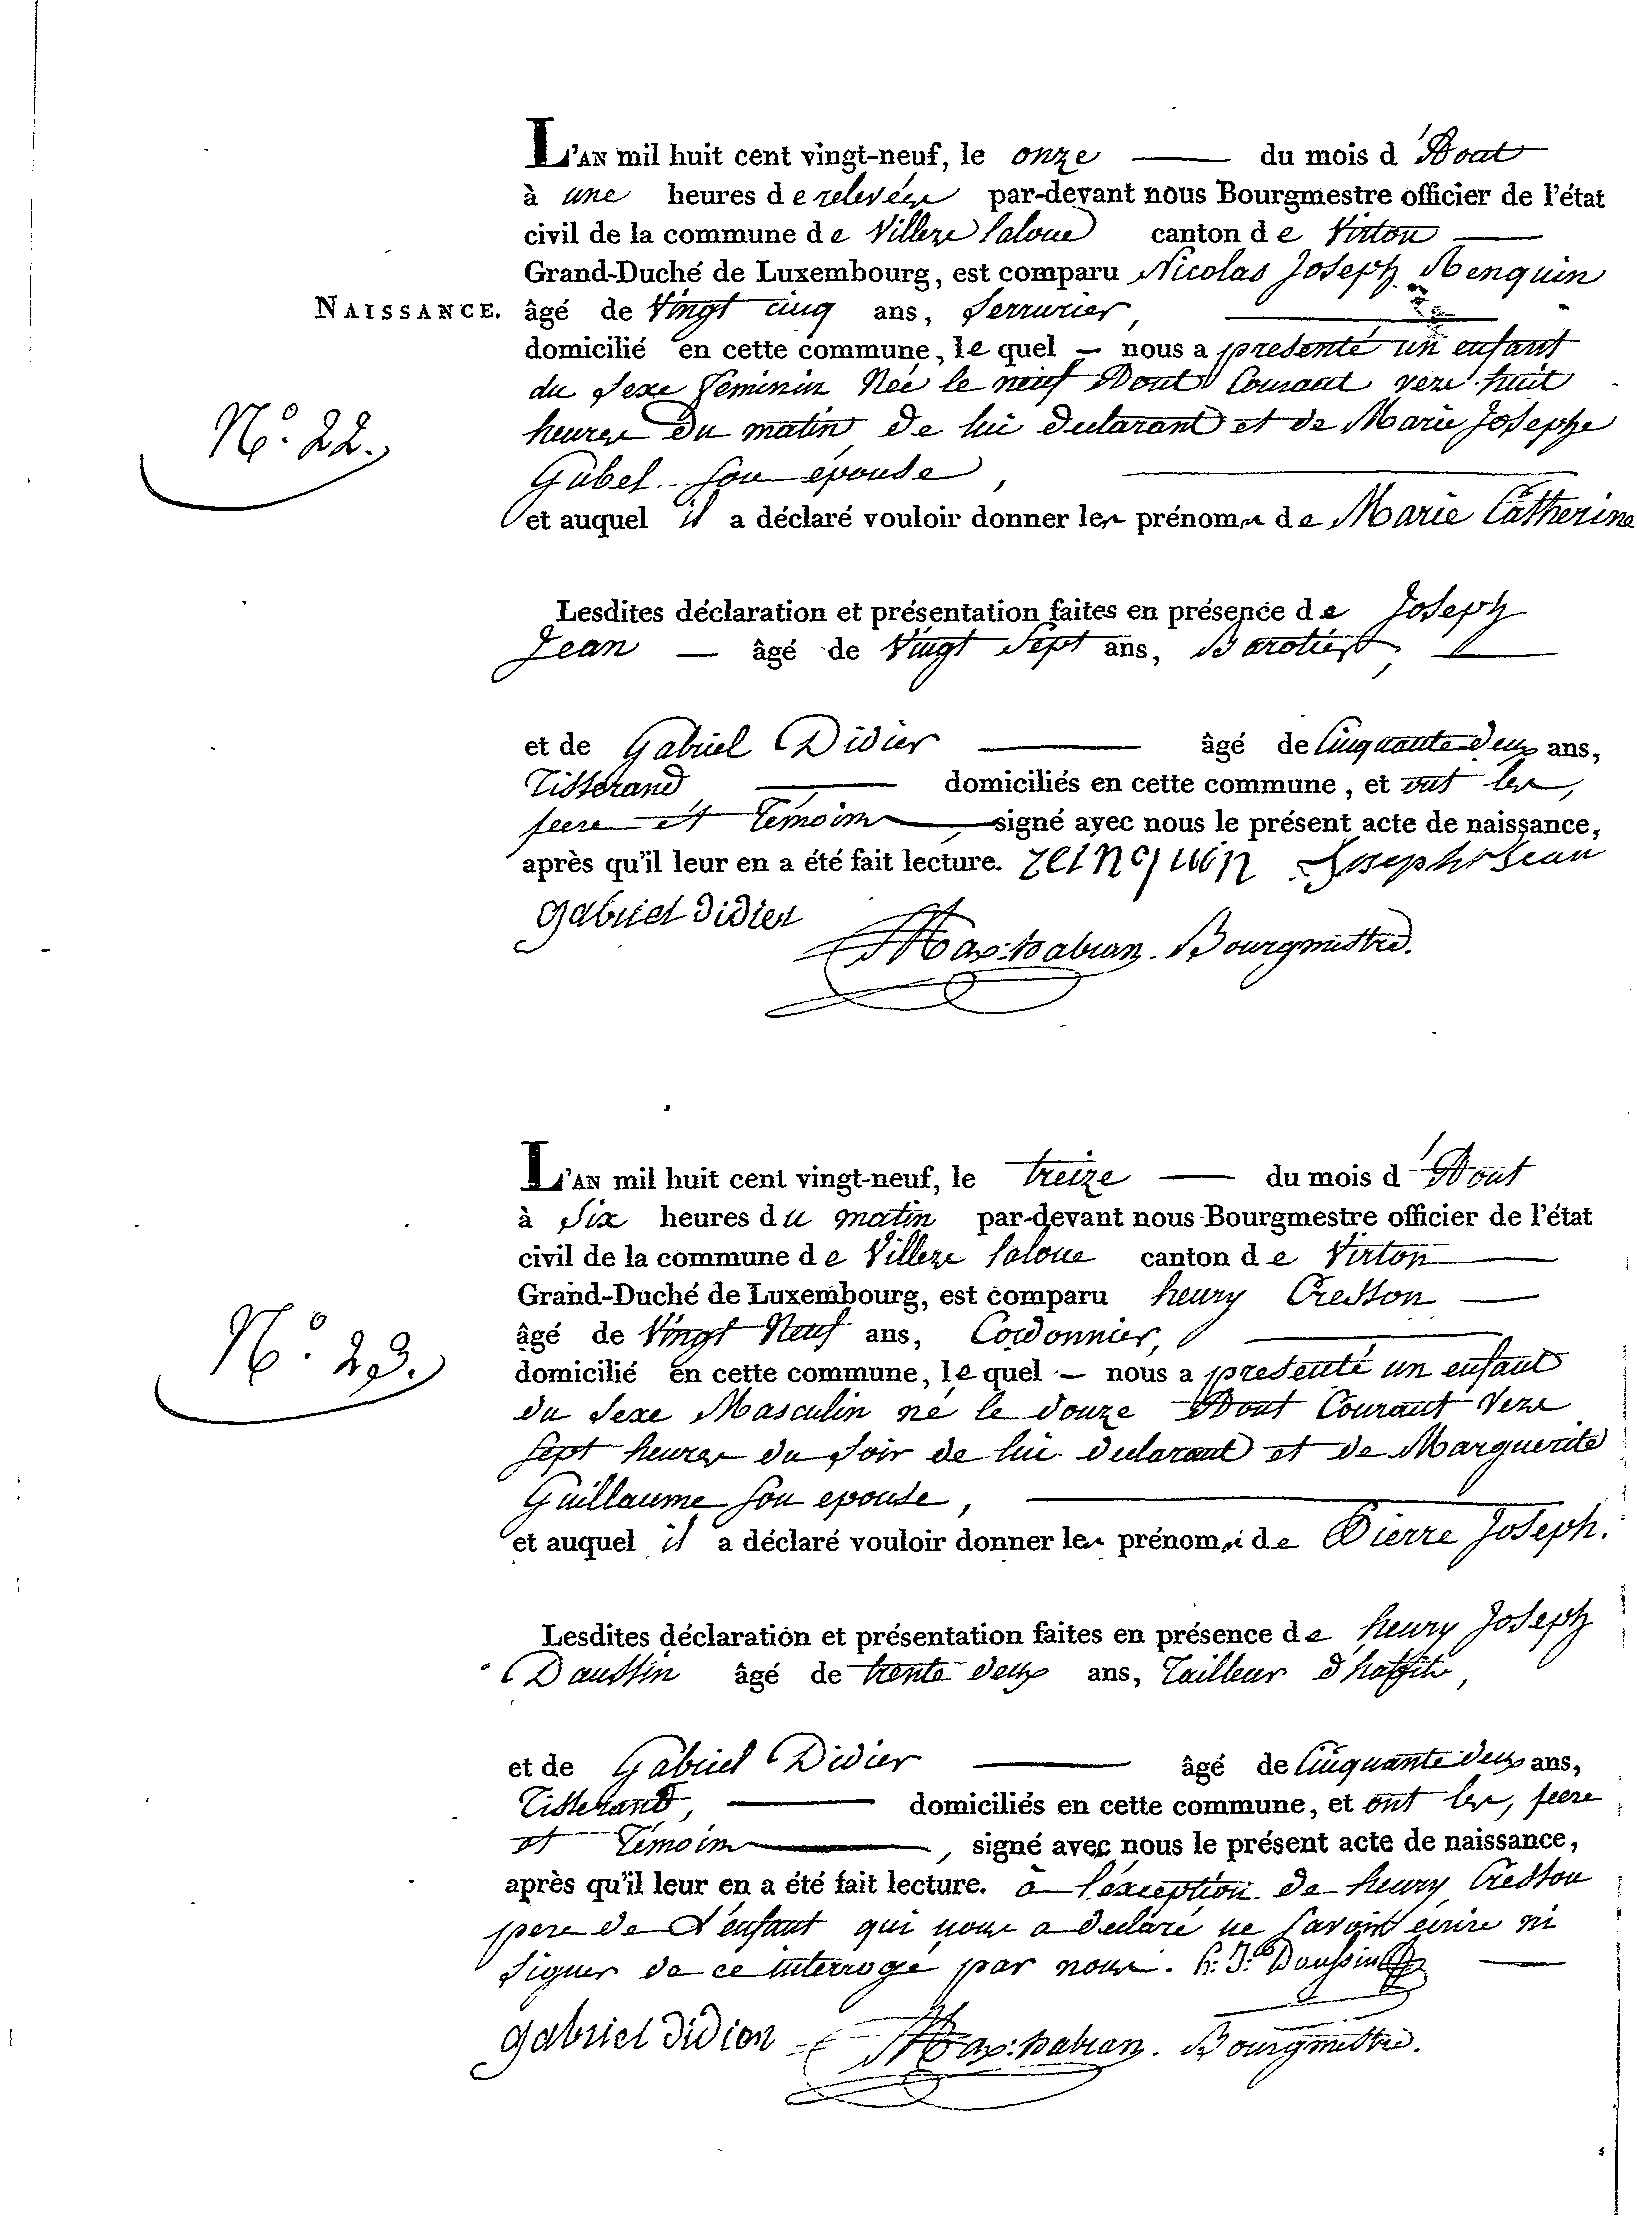 L'AN mil huit cent vingt-neuf, le onze du mois d'Aout
à une heures de relevée par-devant nous Bourgmestre officier de l'état
civil de la commune de Villers laloue canton de Virton
Grand-Duché de Luxembourg, est comparu Nicolas Joseph
NAISSANCE. âgé de Vingt cinq ans, Serrurier,
domicilié en cette commune, le quel nous a presenté un enfant
du Sexe Féminin Née le neuf Aout Courant vers huit
N.° 22. heures Du matin De lui declarant et de Marie Josephe
Gubel Son épouse,
et auquel il a déclaré vouloir donner les prénoms de Marie Catherine
Lesdites déclaration et présentation faites en présence de Joseph
Jean âgé de Vingt Sept ans,
et de Gabriel Didier âgé de Cinquante deux ans,
Tisserand domiciliés en cette commune, et ont les,
peere et Témoins, signé avec nous le présent acte de naissance,
après qu'il leur en a été fait lecture. Joseph Jean
gabriel didier
Bourgmestre.
L'AN mil huit cent vingt-neuf, le treize du mois d'Aout
à Six heures du matin par-devant nous Bourgmestre officier de l'état
civil de la commune de Villers laloue canton de Virton
Grand-Duché de Luxembourg, est comparu henry Cresson
N.° 23. âgé de Vingt Neuf ans, Cordonnier,
domicilié en cette commune, le quel nous a presenté un enfant
du Sexe Masculin né le douze Aout Courant Vers
Sept heures du Soir de lui declarant et de Marguerite
Guillaume Son epouse,
et auquel il a déclaré vouloir donner les prénoms de Pierre Joseph.
Lesdites déclaration et présentation faites en présence de henry Joseph
Daussin âgé de trente deux ans, Tailleur d'habits,
et de Gabriel Didier âgé de Cinquante deux ans,
Tisserand, domiciliés en cette commune, et ont les, peere
et Témoins, signé avec nous le présent acte de naissance,
après qu'il leur en a été fait lecture. à l'exception de henry Cresson
pere de L'enfant qui nous a declaré ne Savoir écrire ni
Signer de ce interrogé par nous. h: J.h Daussin
gabriel didier Bourgmestre.